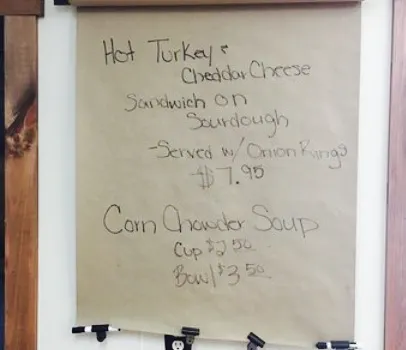 Hot Turkey &
Cheddar Cheese
Sandwich on
Sourdough
-Served w/ Onion Rings
$7.95
Corn Chowder Soup
Cup $2.50
Bowl $3.50